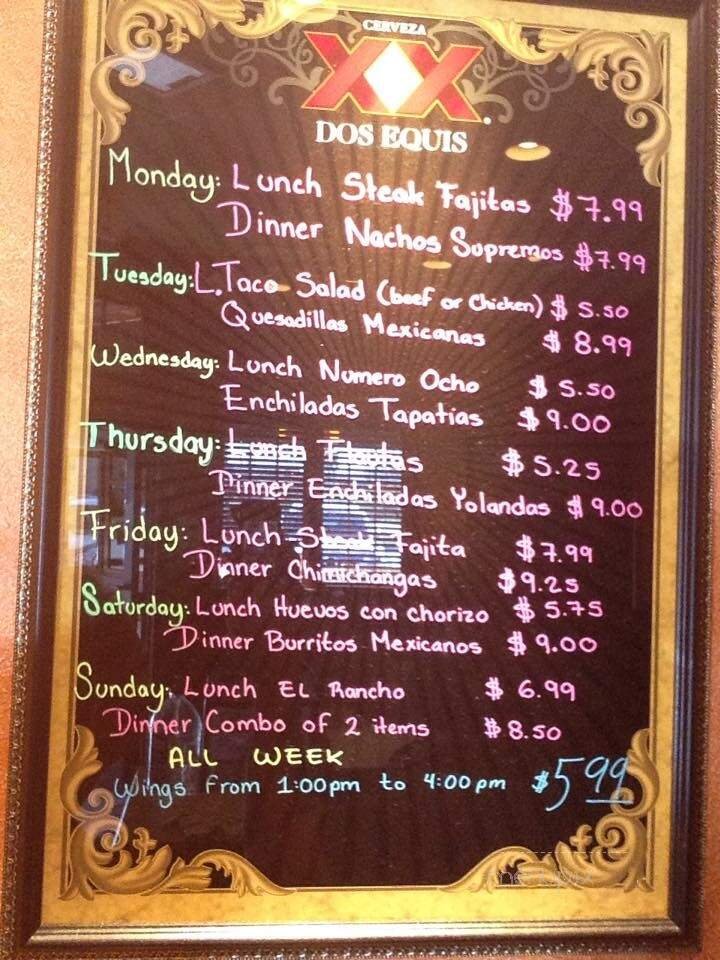 CERVEZA
XX
DOS EQUIS
Monday: Lunch Steak Fajitas $7.99
Dinner Nachos Supremos $7.99
Tuesday: L. Taco Salad (beef or Chicken) $5.50
Quesadillas Mexicanas $8.99
Wednesday: Lunch Numero Ocho $5.50
Enchiladas Tapatias $9.00
Thursday: Lunch $5.25
Dinner Enchiladas Yolandas $9.00
Friday: Lunch Steak Fajita $7.99
Dinner Chimichangas $9.25
Saturday: Lunch Huevos con chorizo $5.75
Dinner Burritos Mexicanos $9.00
Sunday: Lunch EL Rancho $6.99
Dinner Combo of 2 items $8.50
ALL WEEK
Wings From 1:00pm to 4:00pm $5.99